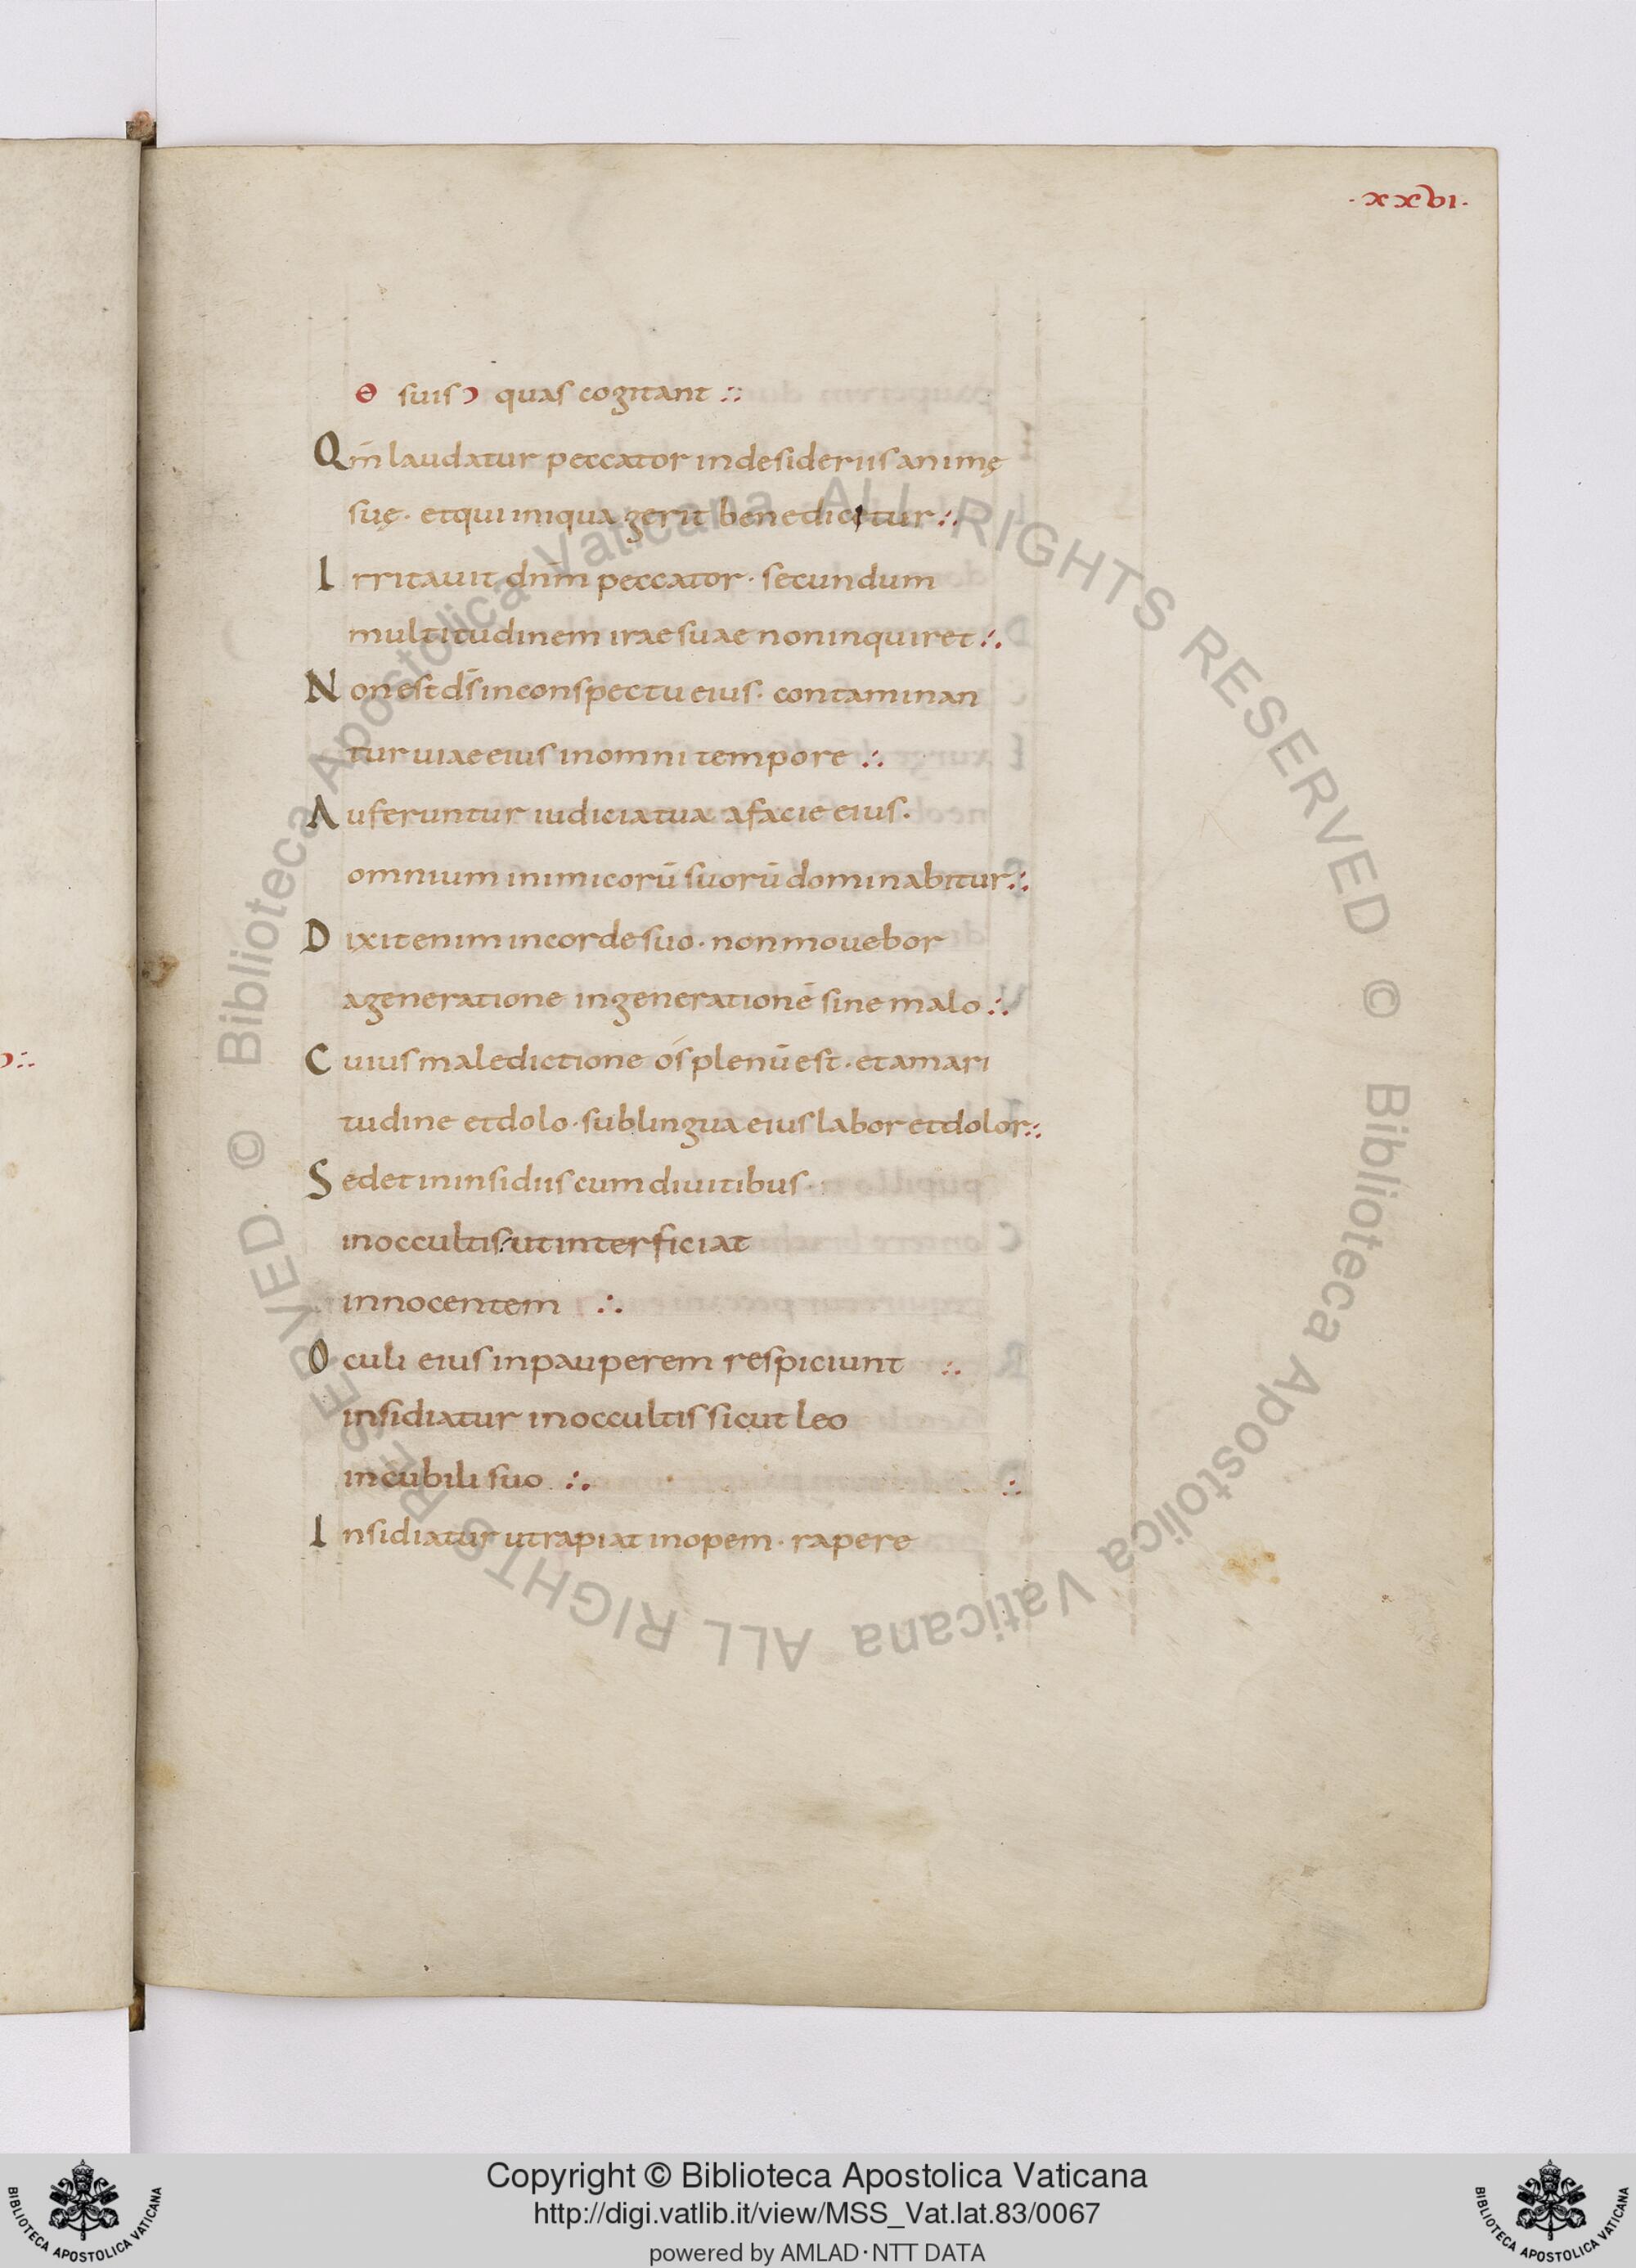 ·xxvi·
ꝋ suisↄ quas cogitant :·:
Qm̄ laudatur peccator indesideriis animę
suę· etqui iniqua gerit benedicetur :·
Irritauit dnm̄ peccator· secundum
multitudinem irae suae noninquiret :·
Non est ds̄ inconspectu eius· contaminan
tur uiae eius inomni tempore :·
Auferuntur iudicia tua afacie eius·
omnium inimicorū suorū dominabitur :·
Dixit enim incorde suo· non mouebor
ageneratione ingenerationē sine malo :·
Cuius maledictione os plenū est· et amari
tudine et dolo· sub lingua eius labor et dolor :·
Sedet ininsidiis cum diuitibus·
inoccultis· ut interficiat
innocentem :·
Oculi eius inpauperem respiciunt :·
insidiatur inoccultis sicut leo
incubili suo :·
Insidiatur ut rapiat inopem· rapere
© Biblioteca Apostolica Vaticana ALL RIGHTS RESERVED
© Biblioteca Apostolica Vaticana ALL RIGHTS RESERVED
Copyright © Biblioteca Apostolica Vaticana
http://digi.vatlib.it/view/MSS_Vat.lat.83/0067
powered by AMLAD·NTT DATA
BIBLIOTECA APOSTOLICA VATICANA
BIBLIOTECA APOSTOLICA VATICANA